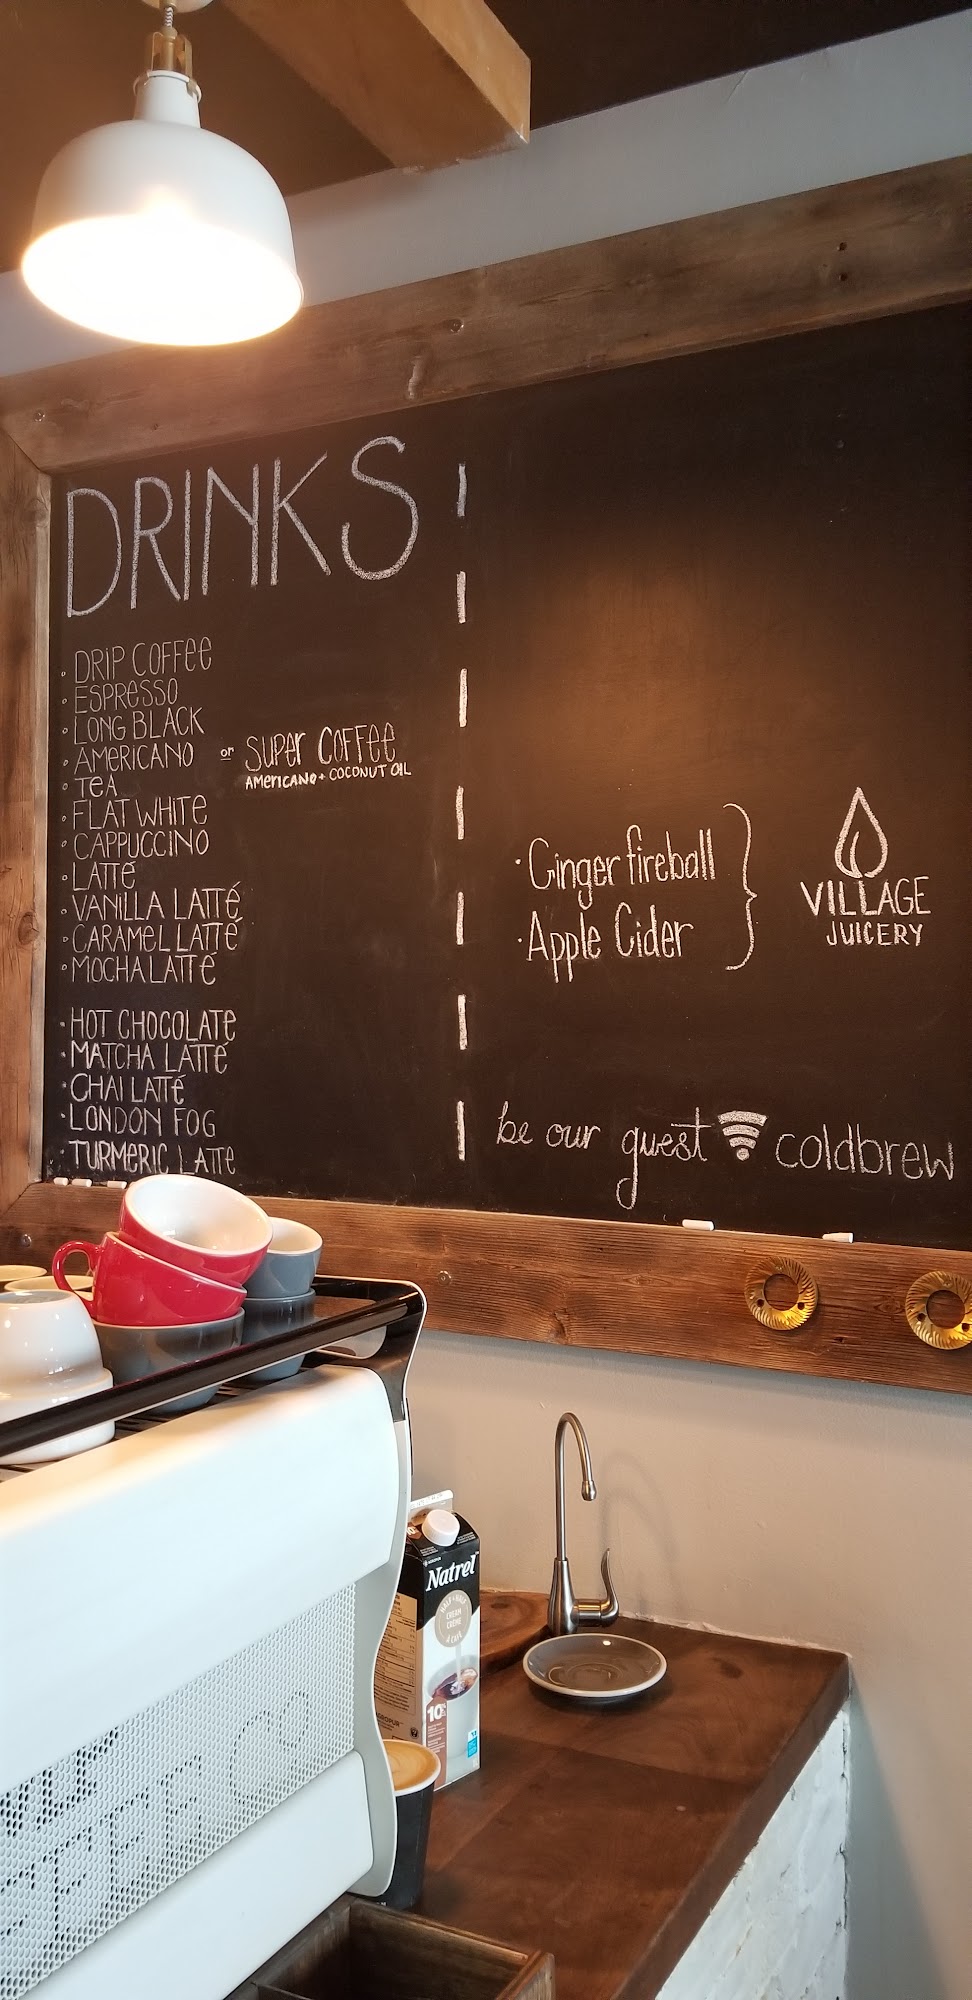 DRINKS
• DRIP COFFEE
• ESPRESSO
• LONG BLACK
• AMERICANO or SUPER COFFEE
AMERICANO + COCONUT OIL
• TEA
• FLAT WHITE
• CAPPUCCINO
• LATTé
• VANILLA LATTé
• CARAMEL LATTé
• MOCHA LATTé
• HOT CHOCOLATE
• MATCHA LATTé
• CHAI LATTé
• LONDON FOG
• TURMERIC LATTE
• Ginger fireball
• Apple Cider
VILLAGE
JUICERY
be our guest coldbrew
Natrel
CREAM
CRÈME
10